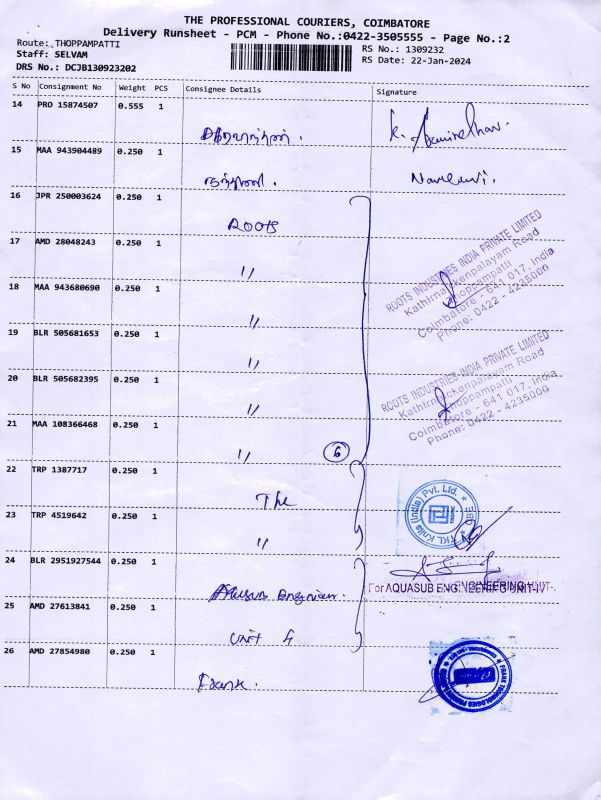 THE PROFESSIONAL COURIERS, COIMBATORE
Delivery Runsheet - PCM - Phone No.:0422-3505555 - Page No.:2
Route: THOPPAMPATTI
Staff: SELVAM
DRS No.: DCJB130923202
RS No.: 1309232
RS Date: 22-Jan-2024
S No Consignment No Weight PCS Consignee Details Signature
14 PRO 15874507 0.555 1
15 MAA 943904489 0.250 1
16 JPR 250003624 0.250 1
ROOTS
17 AMD 28048243 0.250 1
"
18 MAA 943680690 0.250 1
"
19 BLR 505681653 0.250 1
"
20 BLR 505682395 0.250 1
"
21 MAA 108366468 0.250 1
" 6
ROOTS INDUSTRIES INDIA PRIVATE LIMITED
Kathirnaickenpalayam Road
Thoppampatti
Coimbatore - 641 017, India
Phone: 0422 - 4235000
ROOTS INDUSTRIES INDIA PRIVATE LIMITED
Kathirnaickenpalayam Road
Thoppampatti
Coimbatore - 641 017, India
Phone: 0422 - 4235000
22 TRP 1387717 0.250 1
The
23 TRP 4519642 0.250 1
"
TKL Knits (India) Pvt. Ltd.
24 BLR 2951927544 0.250 1
For AQUASUB ENGINEERING UNIT-IV
25 AMD 27613841 0.250 1
Unit 4
26 AMD 27854980 0.250 1
Frank.